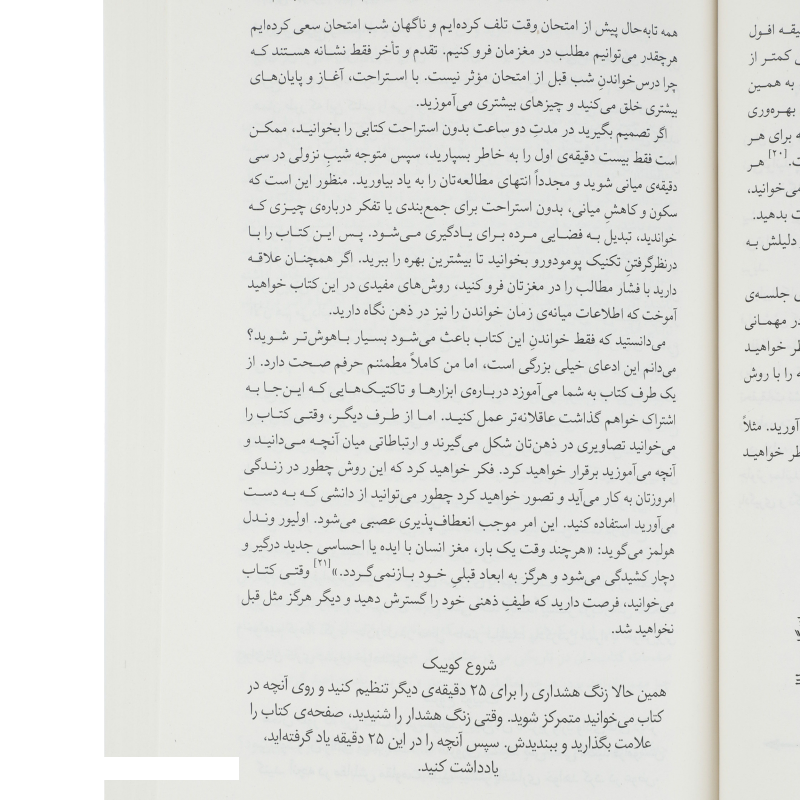 همه تابه‌حال پیش از امتحان وقت تلف کرده‌ایم و ناگهان شب امتحان سعی کرده‌ایم
هرچقدر می‌توانیم مطلب در مغزمان فرو کنیم. تقدم و تأخر فقط نشانه هستند که
چرا درس‌خواندنِ شب قبل از امتحان مؤثر نیست. با استراحت، آغاز و پایان‌های
بیشتری خلق می‌کنید و چیزهای بیشتری می‌آموزید.
اگر تصمیم بگیرید در مدتِ دو ساعت بدون استراحت کتابی را بخوانید، ممکن
است فقط بیست دقیقه‌ی اول را به خاطر بسپارید، سپس متوجه شیبِ نزولی در سی
دقیقه‌ی میانی شوید و مجدداً انتهای مطالعه‌تان را به یاد بیاورید. منظور این است که
سکون و کاهشِ میانی، بدون استراحت برای جمع‌بندی یا تفکر درباره‌ی چیزی که
خواندید، تبدیل به فضایی مرده برای یادگیری می‌شود. پس این کتاب را با
درنظرگرفتنِ تکنیک پومودورو بخوانید تا بیشترین بهره را ببرید. اگر همچنان علاقه
دارید با فشار مطالب را در مغزتان فرو کنید، روش‌های مفیدی در این کتاب خواهید
آموخت که اطلاعات میانه‌ی زمان خواندن را نیز در ذهن نگاه دارید.
می‌دانستید که فقط خواندن این کتاب باعث می‌شود بسیار باهوش‌تر شوید؟
می‌دانم این ادعای خیلی بزرگی است، اما من کاملاً مطمئنم حرفم صحت دارد. از
یک طرف کتاب به شما می‌آموزد درباره‌ی ابزارها و تاکتیک‌هایی که این‌جا به
اشتراک خواهم گذاشت عاقلانه‌تر عمل کنید. اما از طرف دیگر، وقتی کتاب را
می‌خوانید تصاویری در ذهن‌تان شکل می‌گیرند و ارتباطاتی میان آنچه می‌دانید و
آنچه می‌آموزید برقرار خواهید کرد. فکر خواهید کرد که این روش چطور در زندگی
امروزتان به کار می‌آید و تصور خواهید کرد چطور می‌توانید از دانشی که به دست
می‌آورید استفاده کنید. این امر موجب انعطاف‌پذیری عصبی می‌شود. اولیور وندل
هولمز می‌گوید: «هرچند وقت یک بار، مغز انسان با ایده یا احساسی جدید درگیر و
دچار کشیدگی می‌شود و هرگز به ابعاد قبلیِ خود بازنمی‌گردد.»[۲۱] وقتی کتاب
می‌خوانید، فرصت دارید که طیفِ ذهنی خود را گسترش دهید و دیگر هرگز مثل قبل
نخواهید شد.
شروع کوییک
همین حالا زنگ هشداری را برای ۲۵ دقیقه‌ی دیگر تنظیم کنید و روی آنچه در
کتاب می‌خوانید متمرکز شوید. وقتی زنگ هشدار را شنیدید، صفحه‌ی کتاب را
علامت بگذارید و ببندیدش. سپس آنچه را در این ۲۵ دقیقه یاد گرفته‌اید،
یادداشت کنید.
افول
کمتر از
به همین
بهره‌وری
برای هر
[۲۰] هر
می‌خوانید،
بدهید.
دلیلش به
جلسه‌ی
مهمانی
خواهید
را با روش
آورید. مثلاً
خواهید